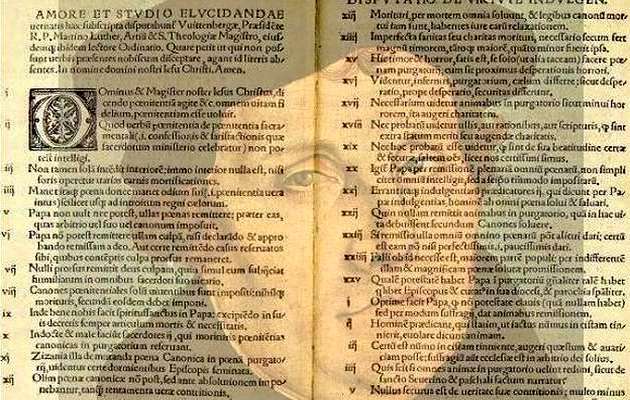 AMORE ET STVDIO ELVCIDANDAE
ueritatis hæc subscripta disputabunt Vuittenbergæ, Præsidēte
R. P. Martino Luther, Artiū & S. Theologiæ Magistro, eius-
dem ibidem lectore Ordinario. Quare petit ut qui non pos-
sunt uerbis præsentes nobiscum disceptare, agant id literis ab-
sentes. In nomine domini nostri Iesu Christi, Amen.
i Ominus & Magister noster Iesus Christus, di-
cendo pœnitentiā agite &c. omnem uitam fi
delium, pœnitentiam esse uoluit.
ij Quod uerbū pœnitentiæ de pœnitentia sacra-
mentali (.i. confessionis & satisfactionis quæ
sacerdotum ministerio celebratur) non po-
test intelligi.
iij Non tamen solā intēdit interiorē: immo interior nulla est, nisi
foris operetur uarias carnis mortificationes.
iiij Manet itaq; pœna donec manet odium sui (.i. pœnitentia uera
intus) scilicet usq; ad introitum regni cælorum.
v Papa non uult nec potest, ullas pœnas remittere: præter eas,
quas arbitrio uel suo uel canonum imposuit.
vj Papa nō potest remittere ullam culpā, nisi declarādo & appro
bando remissam a deo. Aut certe remittēdo casus reseruatos
sibi, quibus contēptis culpa prorsus remaneret.
vij Nulli prorsus remittit deus culpam, quin simul eum subijciat
humiliatum in omnibus sacerdoti suo uicario.
viij Canones pœnitentiales solū uiuentibus sunt impositi: nihilq;
morituris, secundū eosdem debet imponi.
ix Inde bene nobis facit spiritussanctus in Papa: excipiēdo in su-
is decretis semper articulum mortis & necessitatis.
x Indocte & male faciūt sacerdotes ij, qui morituris pœnitētias
canonicas in purgatorium reseruant.
xi Zizania illa de mutanda pœna Canonica in pœnā purgato-
rij, uidentur certe dormientibus Episcopis seminata.
xij Olim pœnæ canonicæ nō post, sed ante absolutionem im po-
nebantur, tanq̄ tentamenta ueræ contritionis.
DISPVTATIO DE VIRTVTE INDVLGEN.
xiij Morituri, per mortem omnia soluunt, & legibus canonū mor-
tui iam sunt, habentes iure earū relaxationem.
xiiij Imperfecta sanitas seu charitas morituri, necessario secum fert
magnū timorem, tātoq; maiorē, quāto minor fuerit ipsa.
xv Hic timor & horror, satis est, se solo (ut alia taceam) facere pœ-
nam purgatorij, cum sit proximus desperationis horrori.
xvj Videntur, infernus, purgatorium, cælum differre: sicut despe-
ratio, prope desperatio, securitas differunt.
xvij Necessarium uidetur animabus in purgatorio sicut minui hor-
rorem, ita augeri charitatem.
xviij Nec probatū uidetur ullis, aut rationibus, aut scripturis, q̄ sint
extra statum meriti seu augendæ charitatis.
xix Nec hoc probatū esse uidetur, q̄ sint de sua beatitudine certæ
& securæ, saltem oēs, licet nos certissimi simus.
xx Igit̄ Papa per remissionē plenariā omniū pœnarū, non simpli
citer omniū intelligit, sed a seipso tātūmodo impositarū.
xxj Errant itaq; indulgentiarū prædicatores ij, qui dicunt per Pa-
pæ indulgentias, hominē ab omni pœna solui & saluari.
xxij Quin nullam remittit animabus in purgatorio, quā in hac ui-
ta debuissent secundum Canones soluere.
xxiij Si remissio ulla omniū omnino pœnarū pōt alicui dari; certū
est eam nō nisi perfectissimis, .i. paucissimis dari.
xxiiij Falli ob id necesse est, maiorē partē populi: per indifferentē
illam & magnificam pœnæ solutæ promissionem.
xxv Qualē potestatē habet Papa ī purgatoriū gnāliter talē habet
quilibet Episcopus & curatus in sua diocesi, & parochia spāliter.
i Optime facit Papa, q̄ nō potestate clauis (quā nullam habet)
sed per modum suffragij, dat animabus remissionem.
ij Hominē prædicant, qui statim, ut iactus nūmus in cistam tin-
nierit, euolare dicunt animam.
iij Certū est nūmo in cistam tinniente, augeri quæstum & auari-
ciam posse: suffragiū aūt ecclesiæ est in arbitrio dei solius.
iiij Quis scit si omnes animæ in purgatorio uelint redimi, sicut de
sancto Seuerino & paschali factum narratur.
v Nullus securus est de ueritate suæ contritionis: multo minus